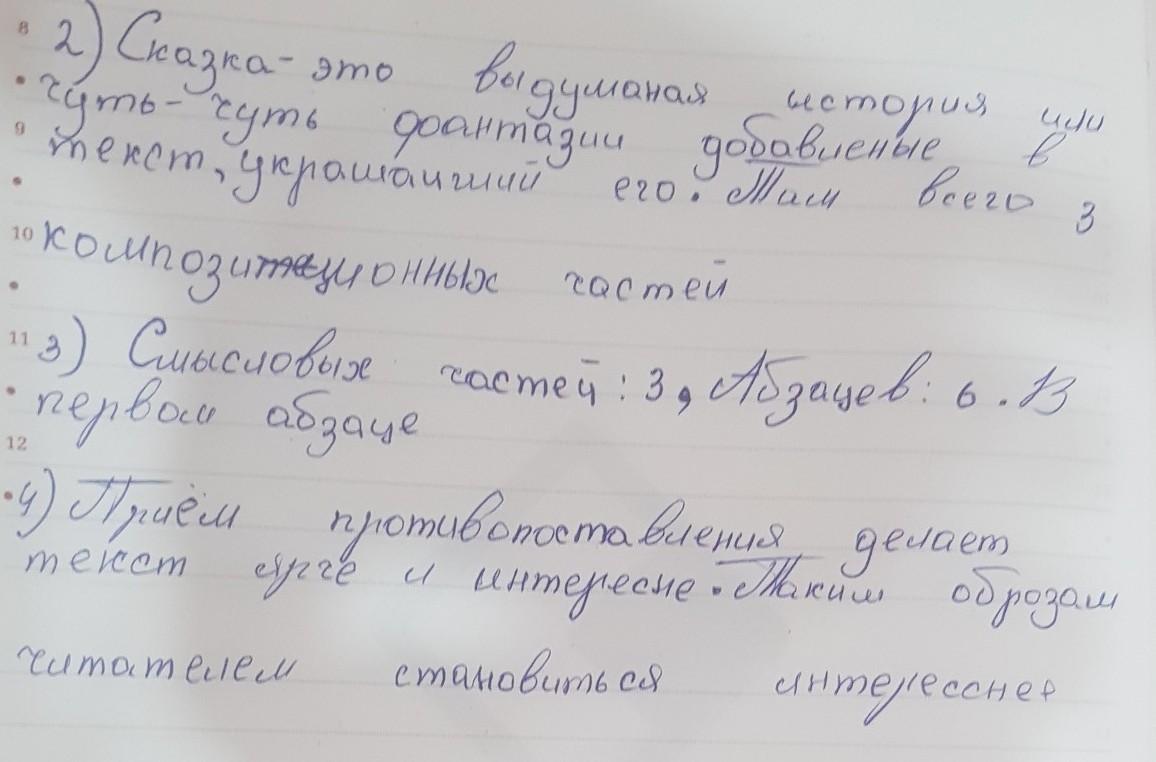 8 2) Сказка - это выдуманая история или
чуть-чуть фоантазии добавленые в
9 текст, украшающий его. Там всего 3
10 композиционных частей
11 3) Смысловых частей: 3, Абзацев: 6. В
первом абзаце
12
4) Приём противопоставления делает
текст ярче и интересне. Таким образом
читателем становиться интересснее